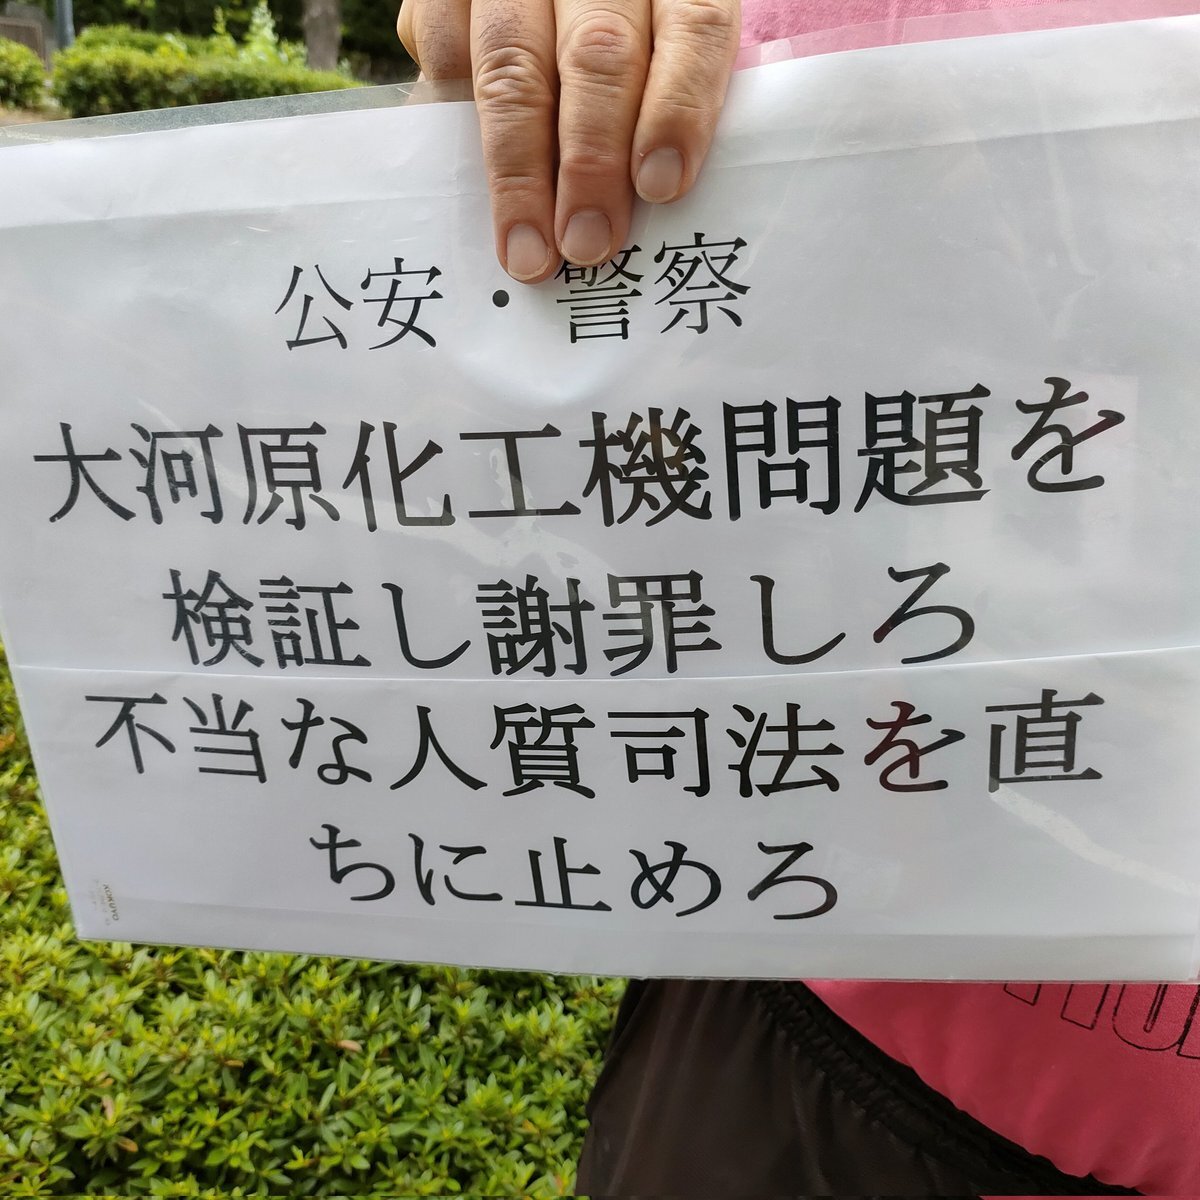 公安・警察
大河原化工機問題を
検証し謝罪しろ
不当な人質司法を直
ちに止めろ
KOKUYO